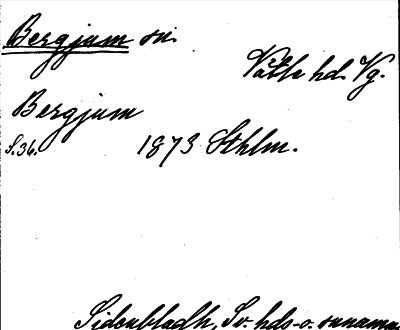 Bergjum sn.
Vätle hd. Vg.
Bergjum
S. 36. 1873 Sthlm.
Sidenbladh, Sv. hds- o. snnamn